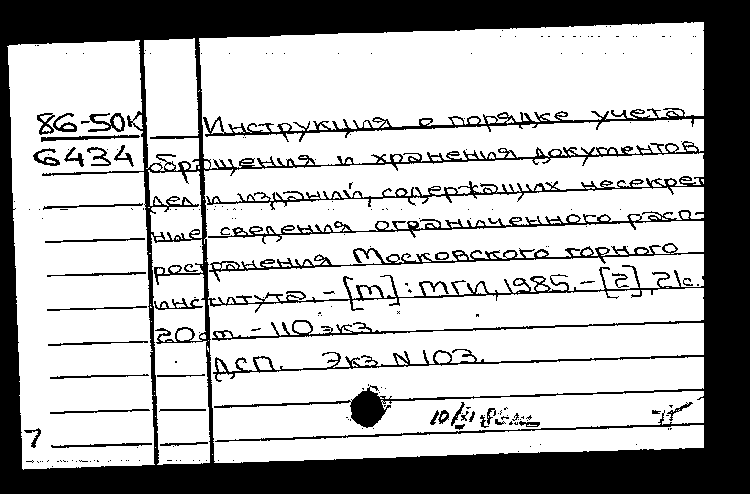 86-50К Инструкция о порядке учета,
6434 обращения и хранения документов
дел и изданий, содержащих несекрет
ные сведения ограниченного расп-
ространения Московского горного
института. - [М.] : МГИ, 1985. - [2], 21с.;
20см. - 110 экз.
ДСП. Экз N 103.
7